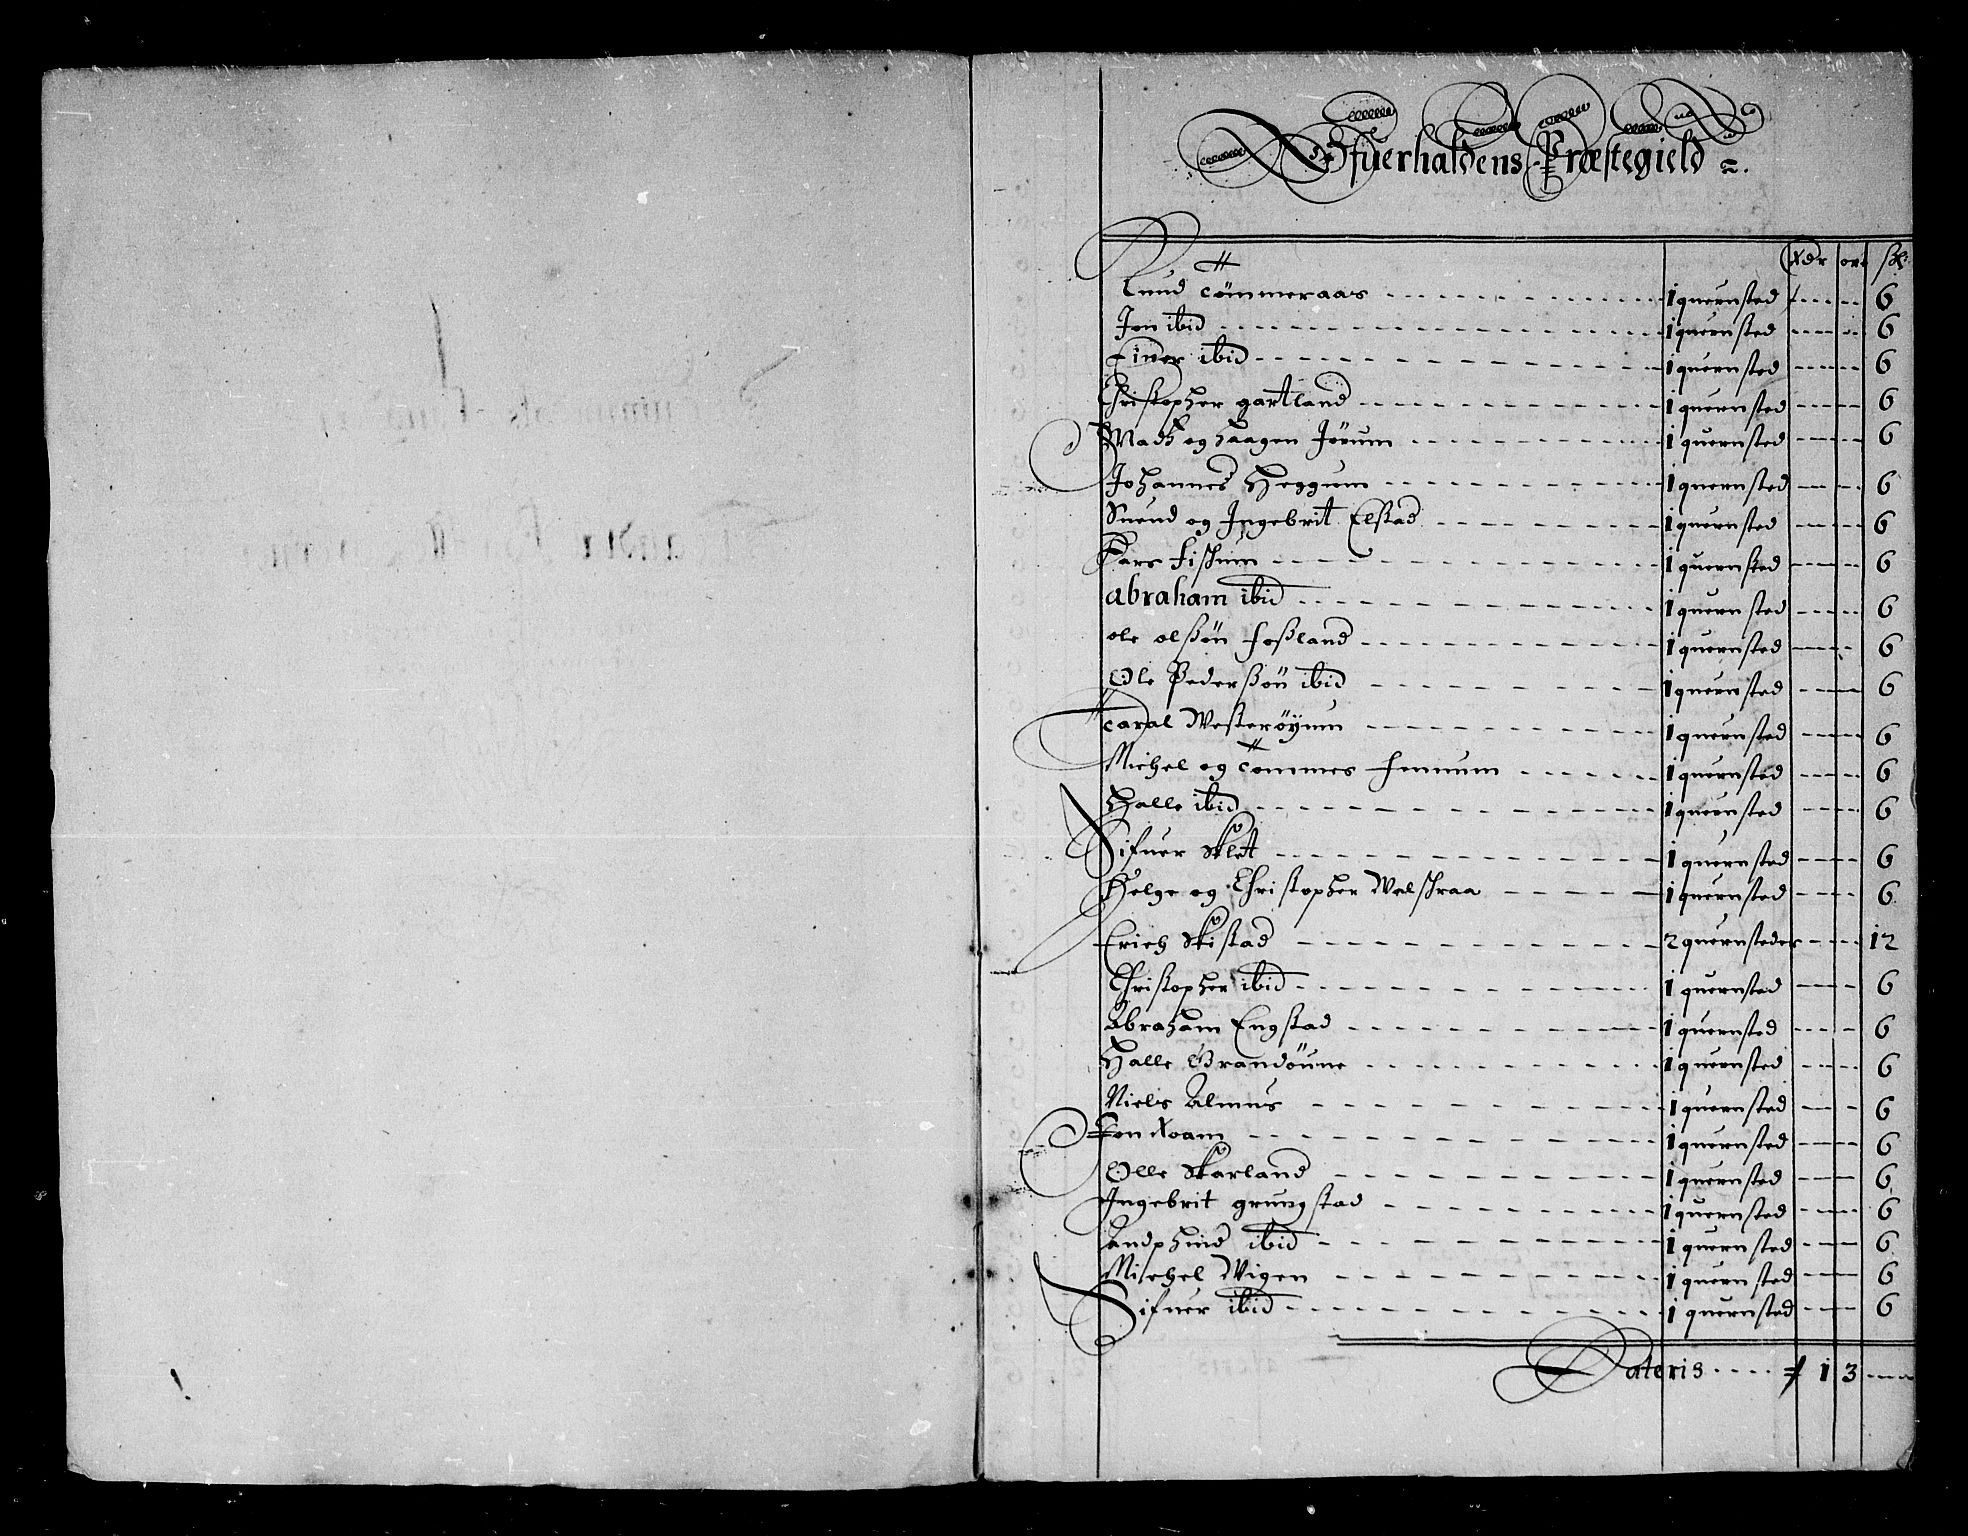 Ofuerhaldens Præstegield
Rdr ort sk:
Knud Tømmeraas 1 quernsted 6
Jon ibid 1 quernsted 6
Einer ibid 1 quernsted 6
Christopher gartland 1 quernsted 6
Madtz og Haagen Jørum 1 quernsted 6
Johannes Heggum 1 quernsted 6
Suend og Ingebrit Elstad 1 quernsted 6
Lars Fiskum 1 quernsted 6
abraham ibid 1 quernsted 6
ole olßøn Foßland 1 quernsted 6
Ole Pederßøn ibid 1 quernsted 6
Taral Westerøyum 1 quernsted 6
Michel og Tommes Femum 1 quernsted 6
Halle ibid 1 quernsted 6
Sifuer Sklet 1 quernsted 6
Helge og Christopher Walskraa 1 quernsted 6
Erich Skistad 2 quernsteder 12
Christopher ibid 1 quernsted 6
Abraham Engstad 1 quernsted 6
Halle Brandøune 1 quernsted 6
Niels Almus 1 quernsted 6
Jon Roam 1 quernsted 6
Olle Skarland 1 quernsted 6
Ingebrit grungstad 1 quernsted 6
Andphind ibid 1 quernsted 6
Michel Wigen 1 quernsted 6
Sifuer ibid 1 quernsted 6
Lateris 1 3